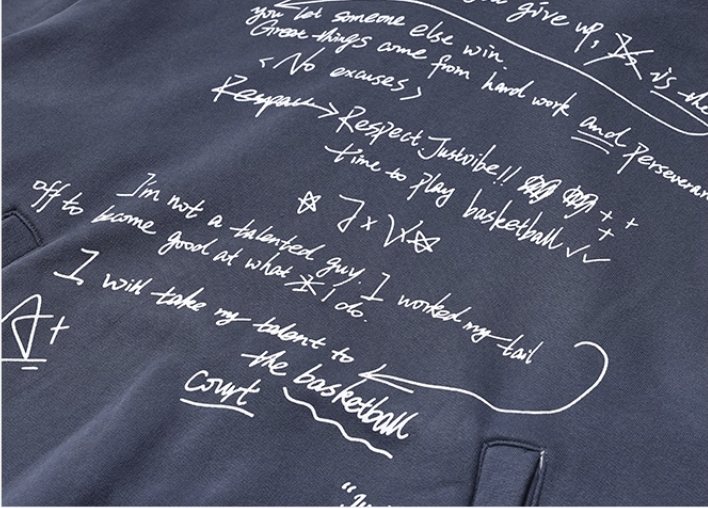 you give up, is the
you let someone else win.
Great things come from hard work and Perseveran
< No excuses >
Respect Justvibe!!
time to play basketball ✓✓
J x V
I'm not a talented guy. I worked my tail
off to become good at what I do.
I will take my talent to
the basketball
court
A+